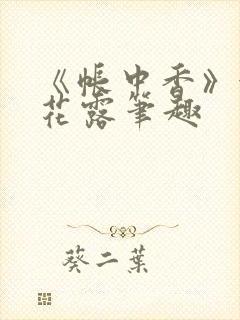 《帐中香》
花露笔趣
葵二葉